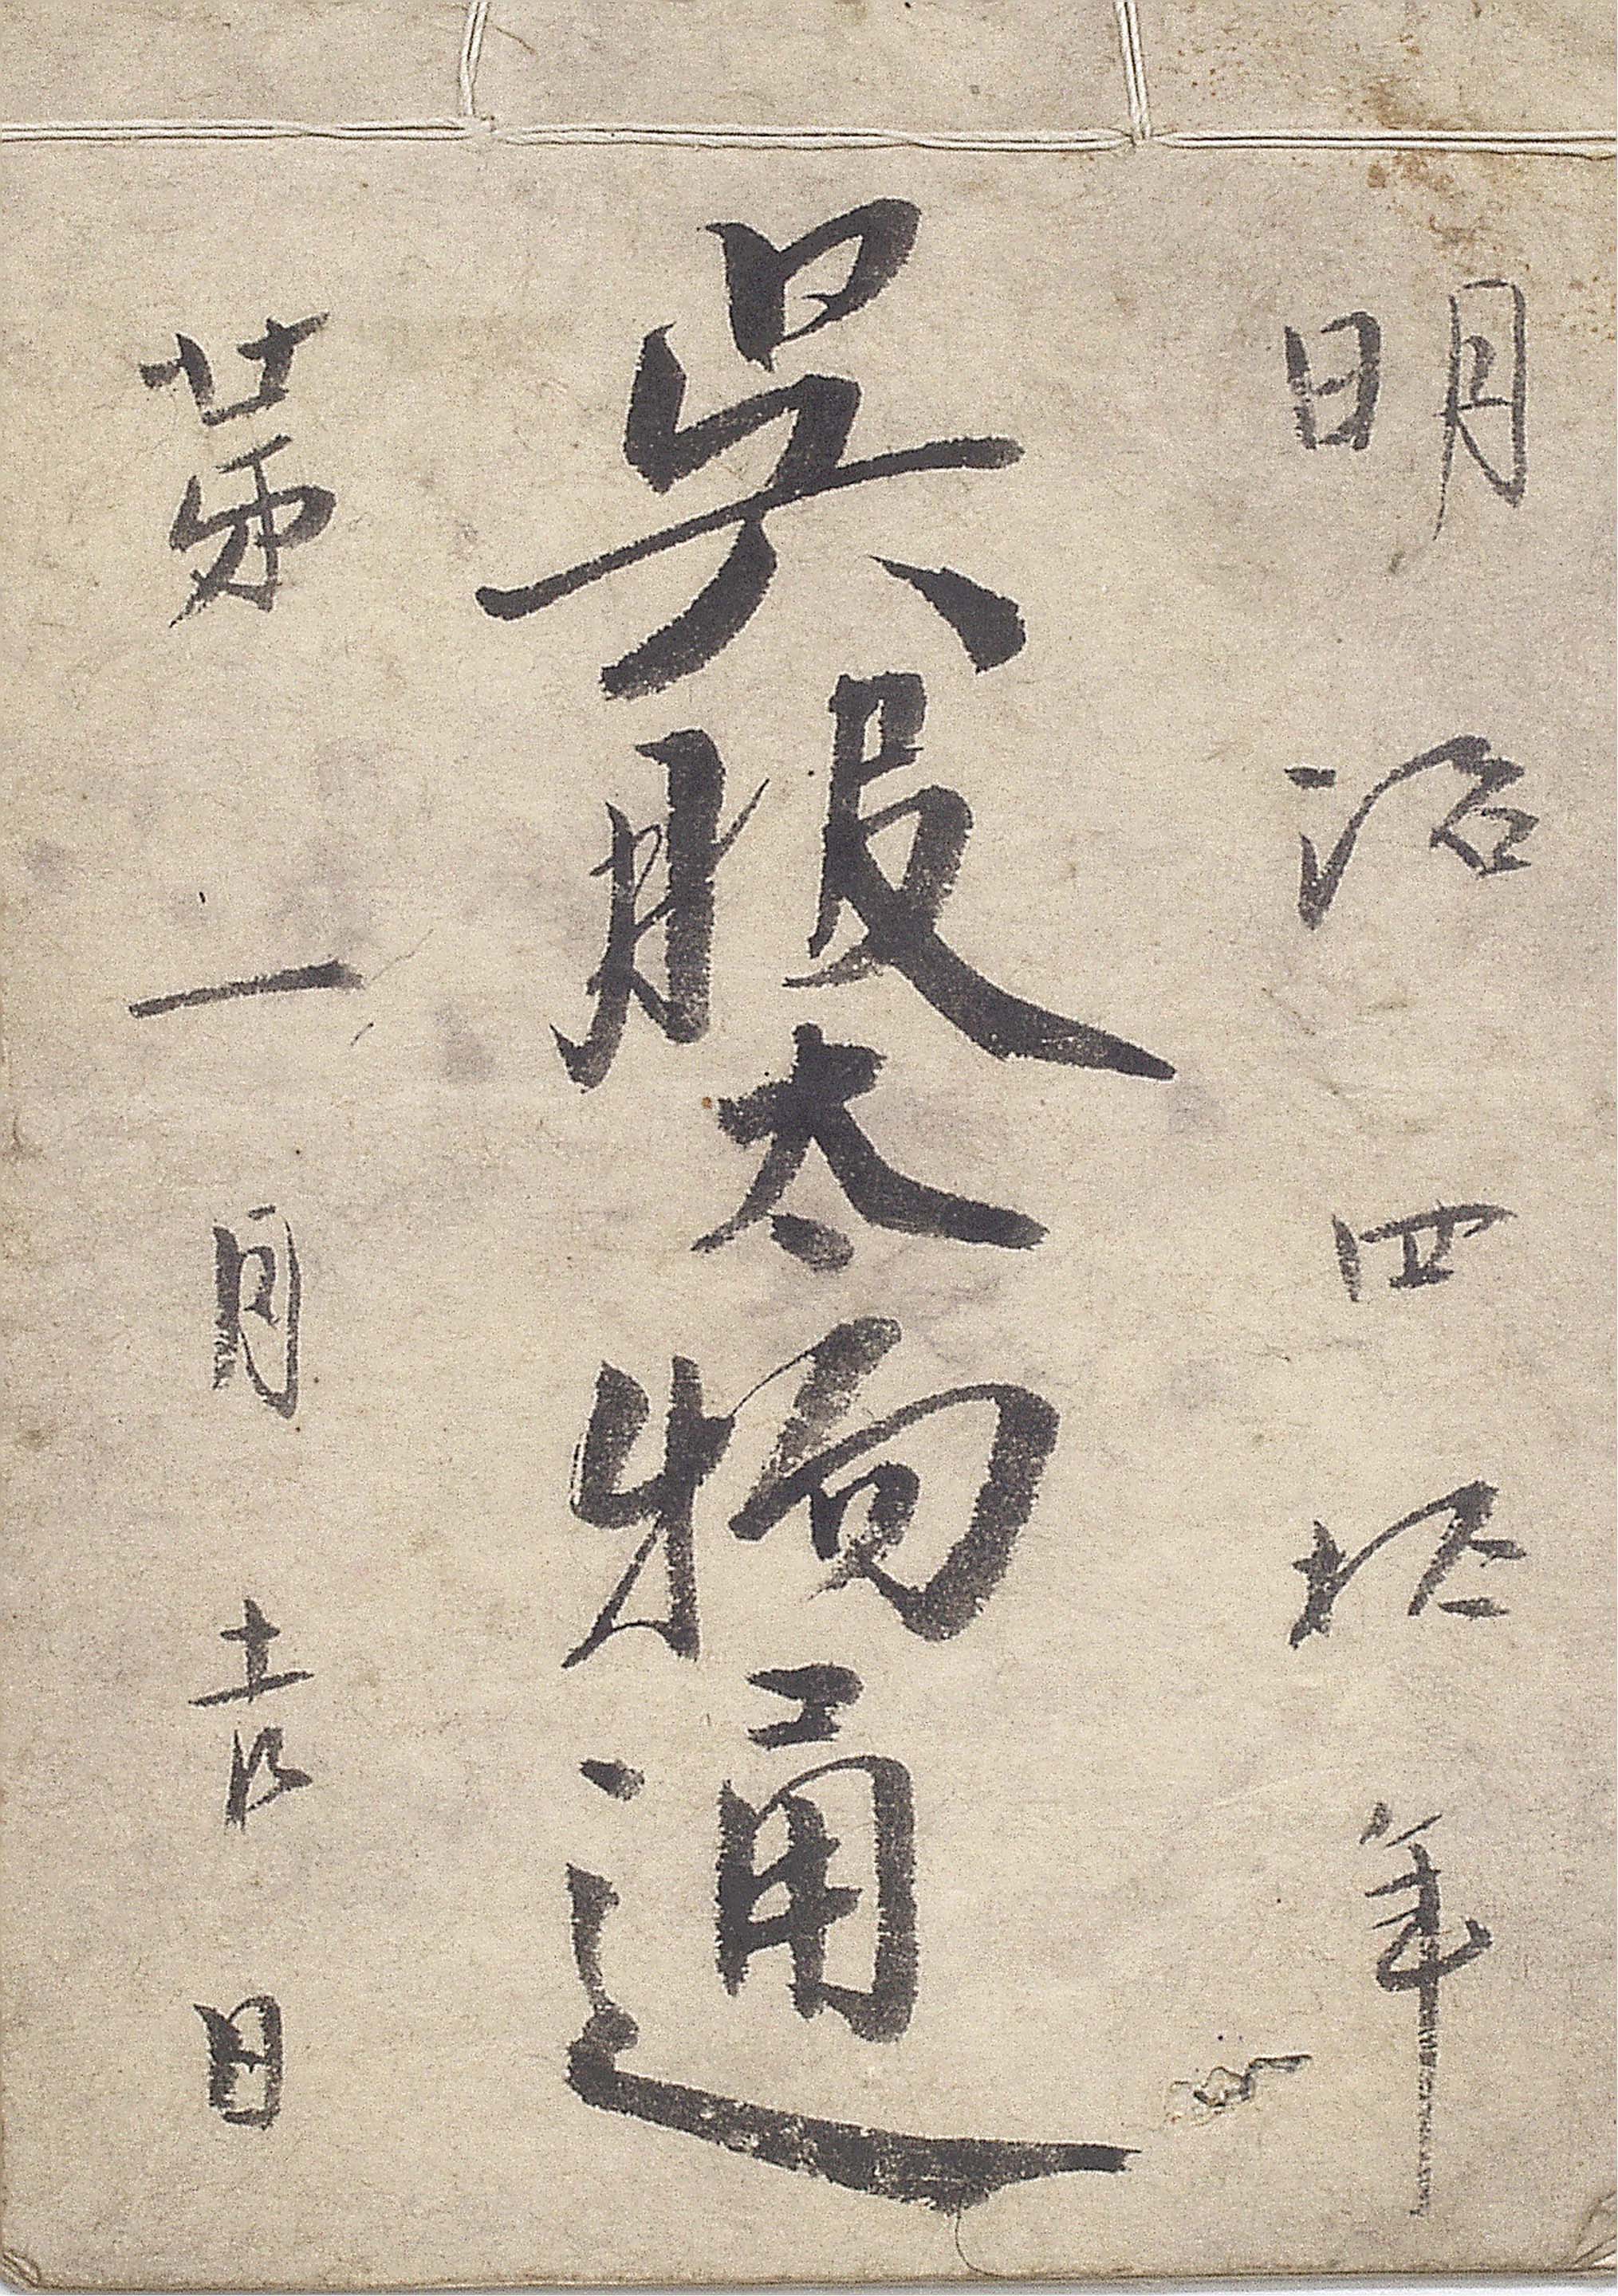 明治四拾年
呉服太物通
第一月吉日